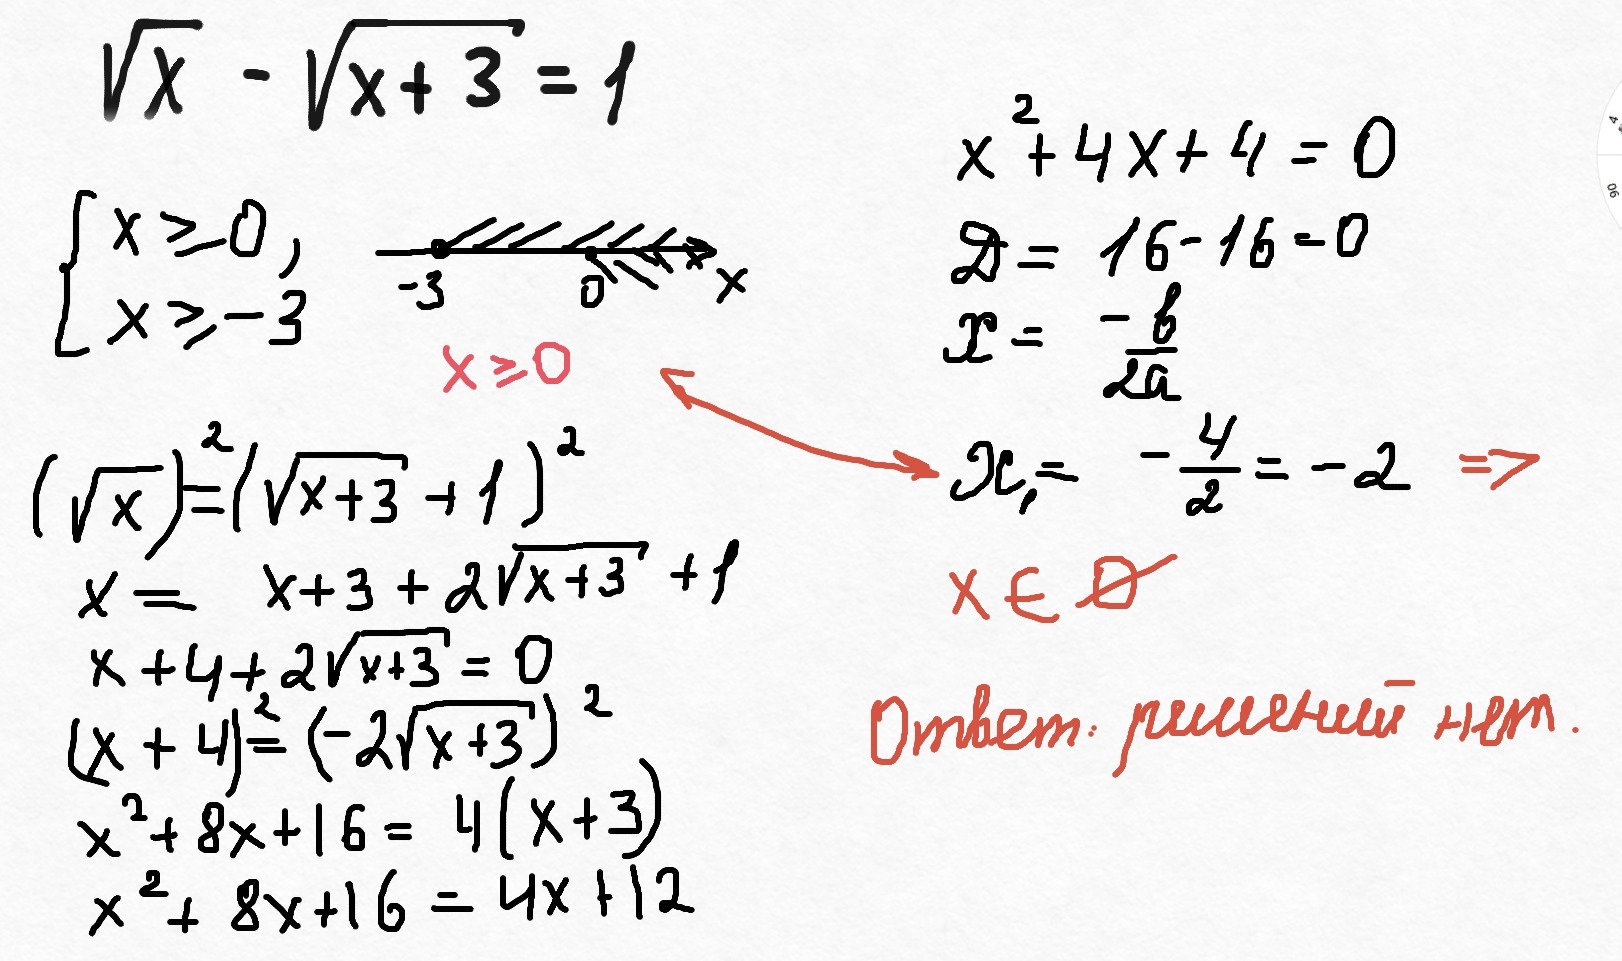 √x - √(x+3) = 1
{ x ≥ 0,
x ≥ -3
-3 0 x
x ≥ 0
(√x)² = (√(x+3) + 1)²
x = x+3 + 2√(x+3) + 1
x + 4 + 2√(x+3) = 0
(x + 4)² = (-2√(x+3))²
x² + 8x + 16 = 4(x+3)
x² + 8x + 16 = 4x + 12
x² + 4x + 4 = 0
D = 16 - 16 = 0
x = -b/2a
x₁ = -4/2 = -2 =>
x ∈ ∅
Ответ: решений нет.
4
90